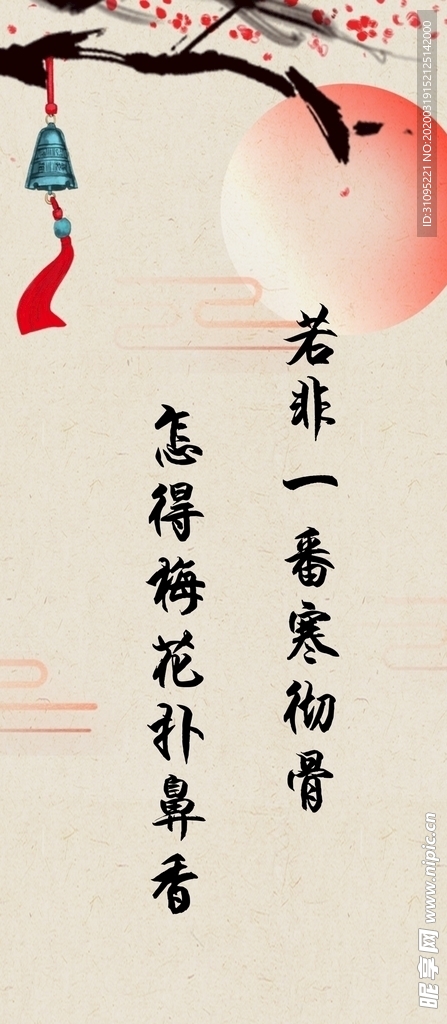 若非一番寒彻骨
怎得梅花扑鼻香
ID:31095221 NO:20200319152125142000
昵享网 www.nipic.cn